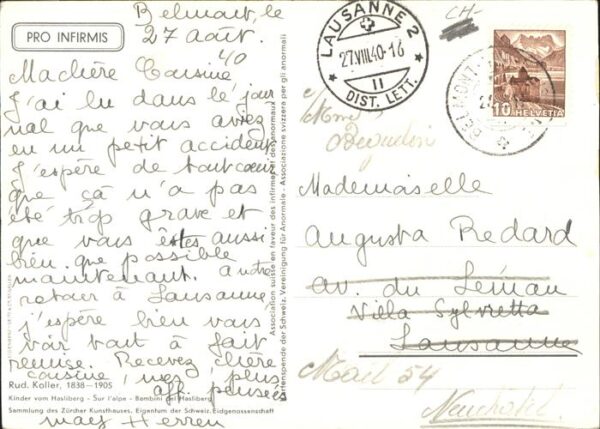 PRO INFIRMIS
Belmont, le
27 août.
40
Ma chère Cousine
J'ai lu dans le jour
nal que vous aviez
eu un petit accident
J'espère de tout cœur
que ça n'a pas
été trop grave et
que vous êtes aussi
bien que possible
maintenant. a notre
retour à Lausanne
j'espère bien vous
voir tout à fait
remise. Recevez chère
cousine, mes plus
aff. pensées
may Herren
Rud. Koller, 1838–1905
Kinder vom Hasliberg - Sur l'alpe - Bambini del Hasliberg
Sammlung des Zürcher Kunsthauses. Eigentum der Schweiz. Eidgenossenschaft
Association suisse en faveur des infirmes et des anormaux - Associazione svizzera per gli anormali
Kartenspende der Schweiz. Vereinigung für Anormale
LAUSANNE 2
27.VIII.40-16
II
DIST. LETT.
CH-
10 HELVETIA
BELMONT
Mademoiselle
Augusta Redard
av. du Léman
Villa Sylvretta
Lausanne
Mail 54
Neuchâtel